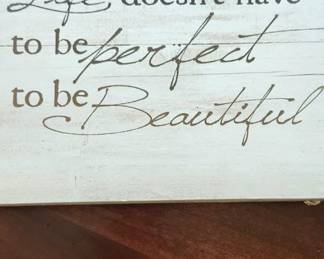 Life doesn't have
to be perfect
to be Beautiful